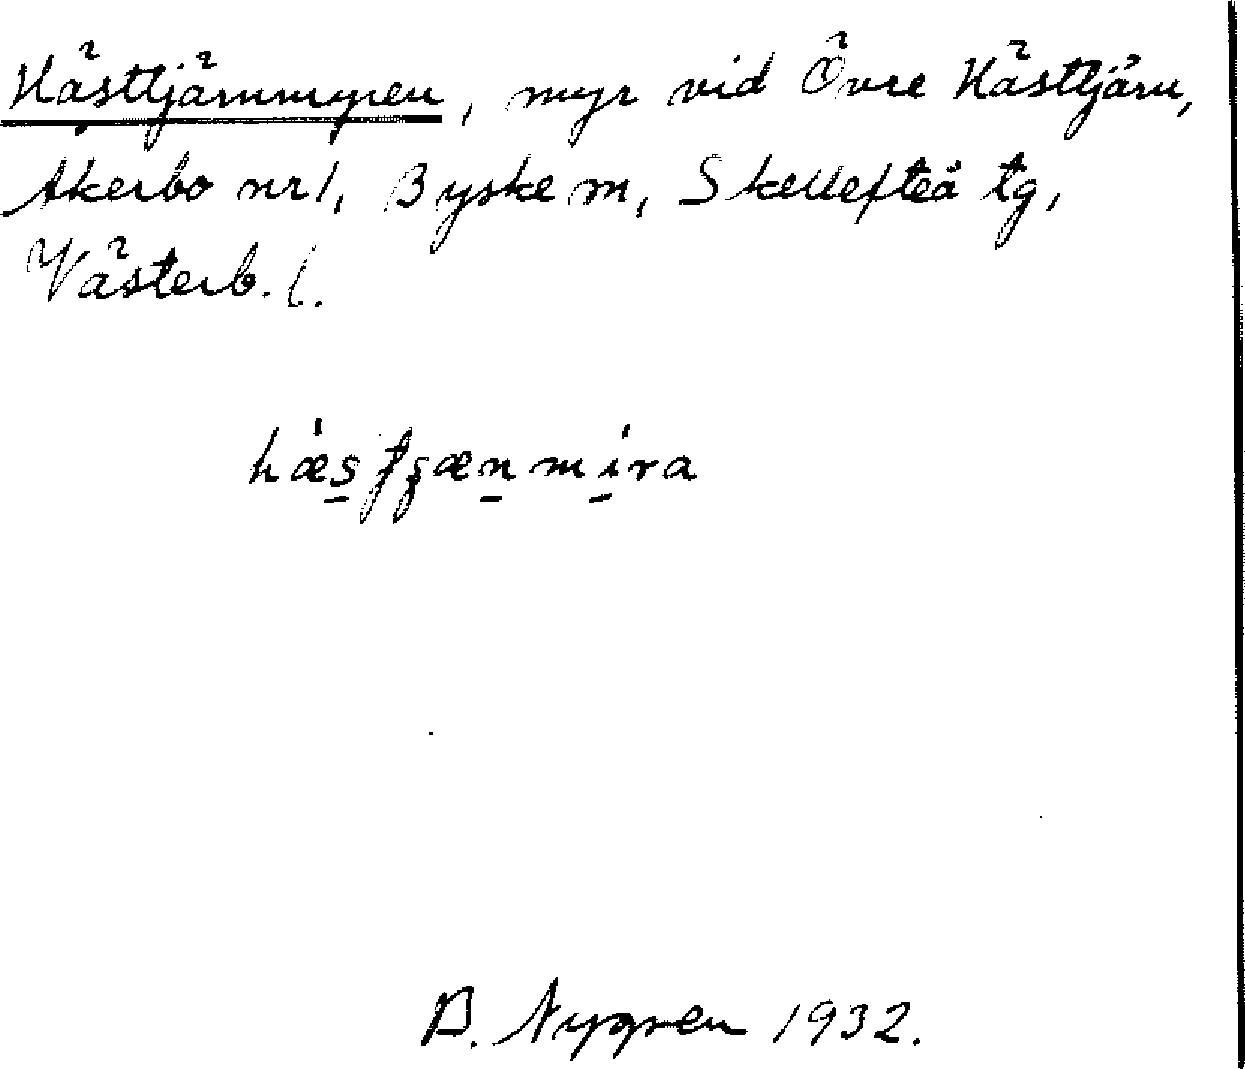 Hästtjärnmyren, myr vid Övre Hästtjärn,
Åkerbo nr 1, Byske m, Skellefteå tg,
Västerb. l.
hæs̲tʂæn̲mi̲ra
B. Nygren 1932.